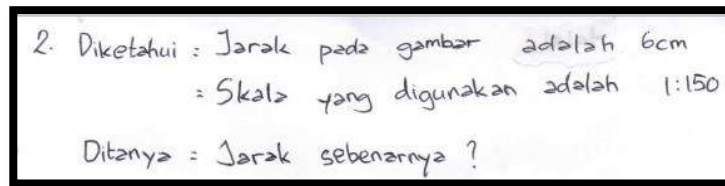 2. Diketahui : Jarak pada gambar adalah 6cm
: Skala yang digunakan adalah 1:150
Ditanya : Jarak sebenarnya ?